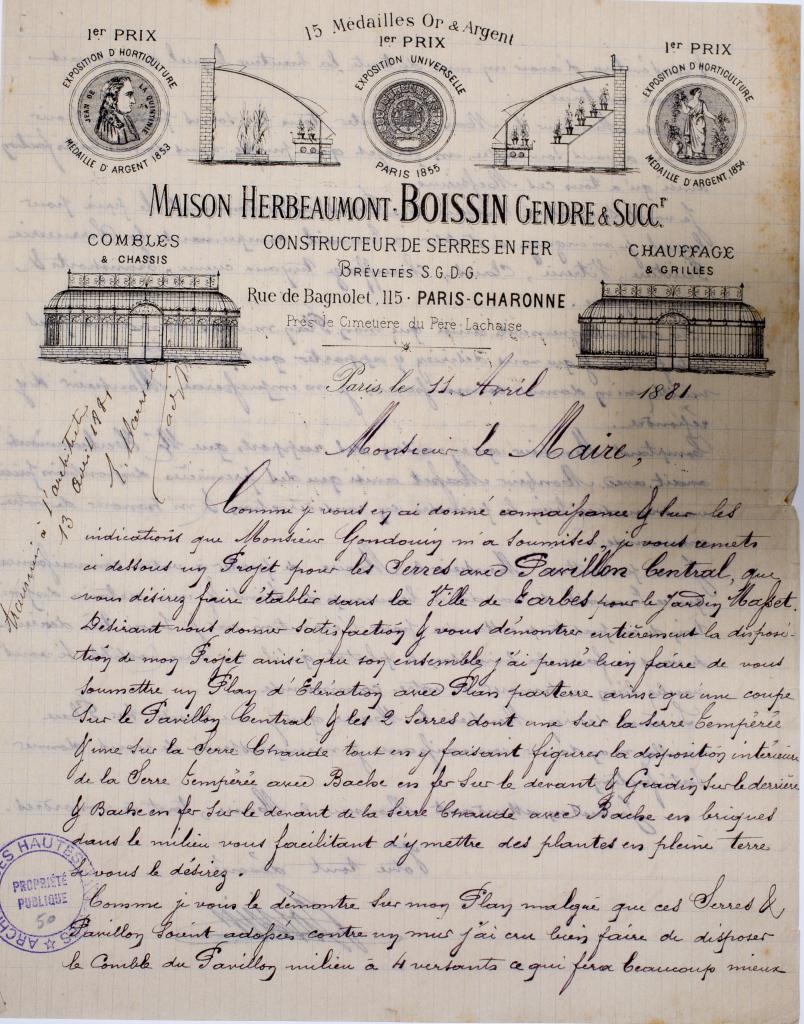 15 Médailles Or & Argent
1er PRIX
EXPOSITION D'HORTICULTURE
JEAN DE LA QUINTINIE
MÉDAILLE D'ARGENT 1853
1er PRIX
EXPOSITION UNIVERSELLE
PARIS 1855
1er PRIX
EXPOSITION D'HORTICULTURE
MÉDAILLE D'ARGENT, 1854
MAISON HERBEAUMONT-BOISSIN GENDRE & SUCCr
COMBLES
& CHASSIS
CONSTRUCTEUR DE SERRES EN FER
BREVETÉS S.G.D.G
Rue de Bagnolet, 115 · PARIS-CHARONNE
Près le Cimetière du Père Lachaise
CHAUFFAGE
& GRILLES
Paris, le 11 Avril 1881
à l'architecte
13 avril 1881
Monsieur le Maire,
Comme je vous en ai donné connaissance & sur les
indications que Monsieur Gondouin m'a soumises, je vous remets
ci dessous un Projet pour les Serres avec Pavillon Central, que
vous désirez faire établir dans la Ville de Tarbes pour le Jardin Masset.
Désirant vous donner satisfaction & vous démontrer entièrement la disposi-
tion de mon Projet ainsi que son ensemble j'ai pensé bien faire de vous
soumettre un Plan d'Elévation avec Plan parterre ainsi qu'une coupe
sur le Pavillon Central & les 2 Serres dont une sur la serre tempérée
& une sur la Serre Chaude tout en y faisant figurer la disposition intérieure
de la Serre tempérée avec Bache en fer sur le devant & Gradin sur le derrière
& Bache en fer sur le devant de la Serre Chaude avec Bache en briques
dans le milieu vous facilitant d'y mettre des plantes en pleine terre
si vous le désirez.
Comme je vous le démontre sur mon Plan malgré que ces Serres &
Pavillon soient adossés contre un mur j'ai cru bien faire de disposer
le Comble du Pavillon milieu à 4 versants ce qui fera beaucoup mieux
ARCHIVES HAUTES
PROPRIÉTÉ
PUBLIQUE
50